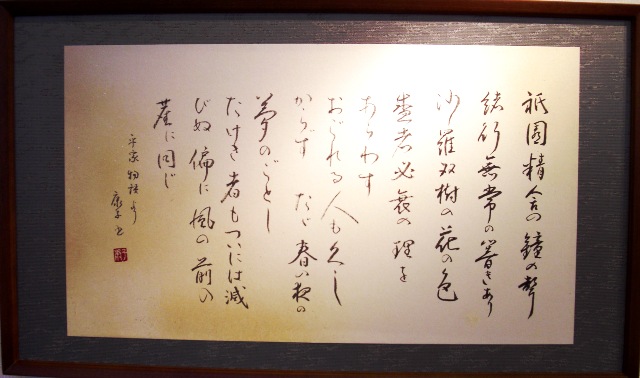 祇園精舎の鐘の聲
諸行無常の響きあり
沙羅双樹の花の色
盛者必衰の理を
あらわす
おごれる人も久し
からず たゞ春の夜の
夢のごとし
たけき者もついには滅
びぬ 偏に風の前の
塵に同じ
平家物語より
康子書